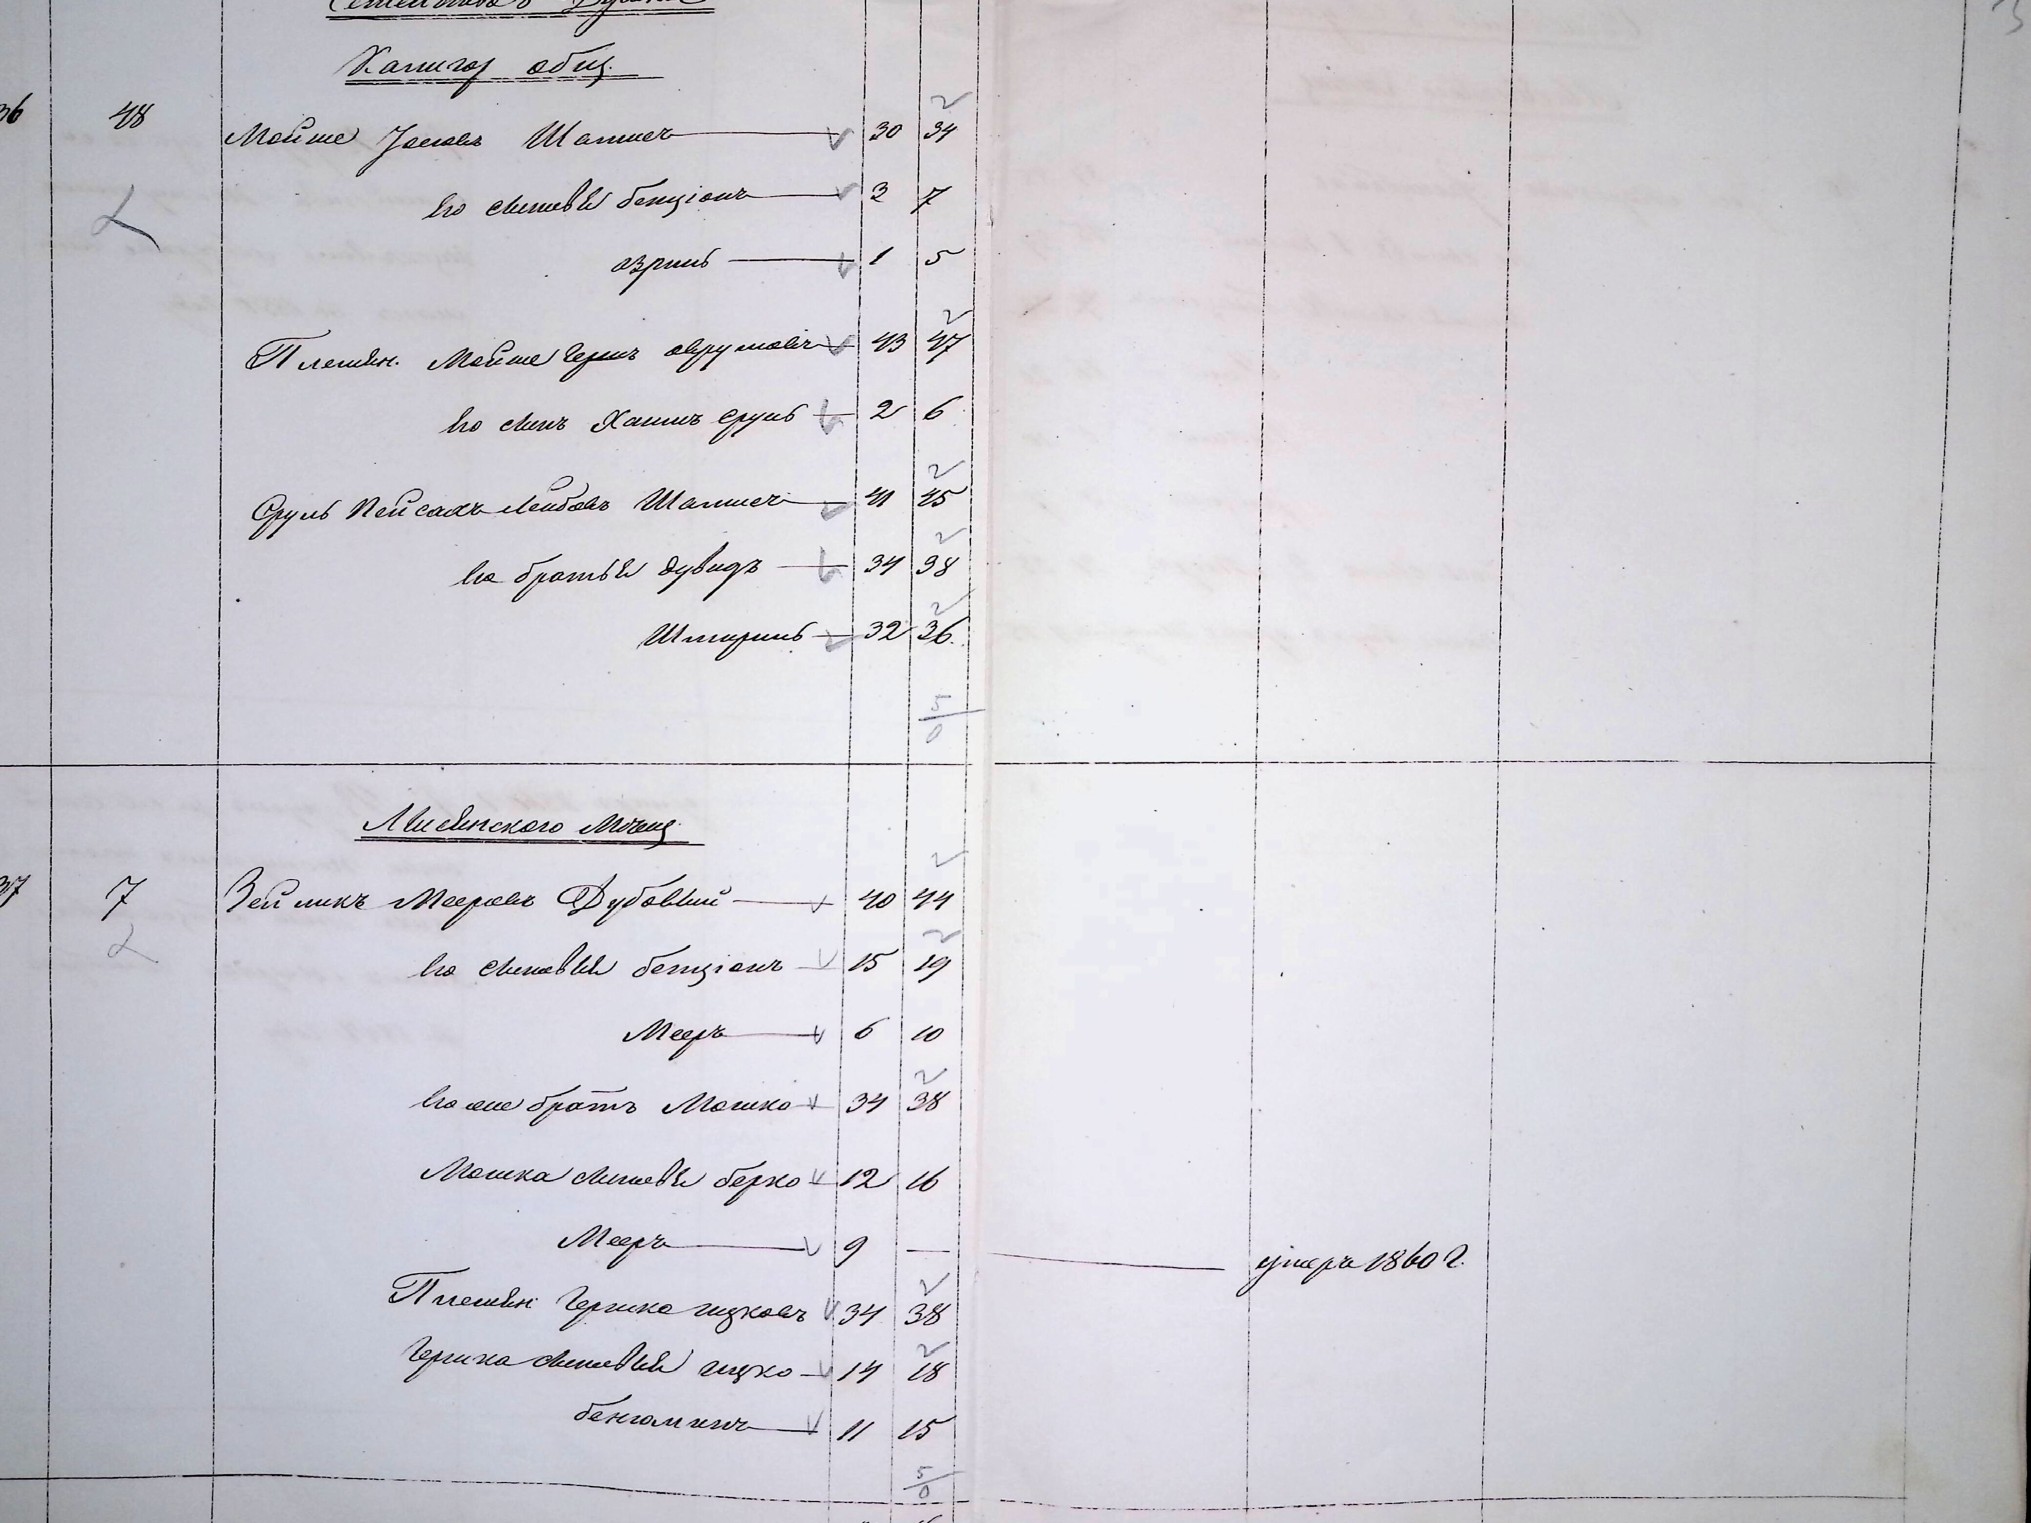 Калигор общ.
36 48 Мойше Іосевъ Шаписъ 30 34
Его сыновья бенціонъ 3 7
азрилъ 1 5
Племян. Мойше Гершъ аврумовъ 43 47
Его сынъ Хаимъ сруль 2 6
Сруль Пейсахъ Лейбовъ Шаписъ 41 45
Его братья дувидъ 34 38
Шмариль 32 36.
5/0
Лисянского Мѣщ.
37 7 Зейликъ Мееровъ Дубовый 40 44
Его сыновья бенціонъ 15 19
Мееръ 6 10
Его же братъ Мошко 34 38
Мошка сыновья берко 12 16
Мееръ 9 — умеръ 1860 г.
Племян. Гершко ицковъ 34 38
Гершка сыновья ицко 14 18
беніоминъ 11 15
5/0